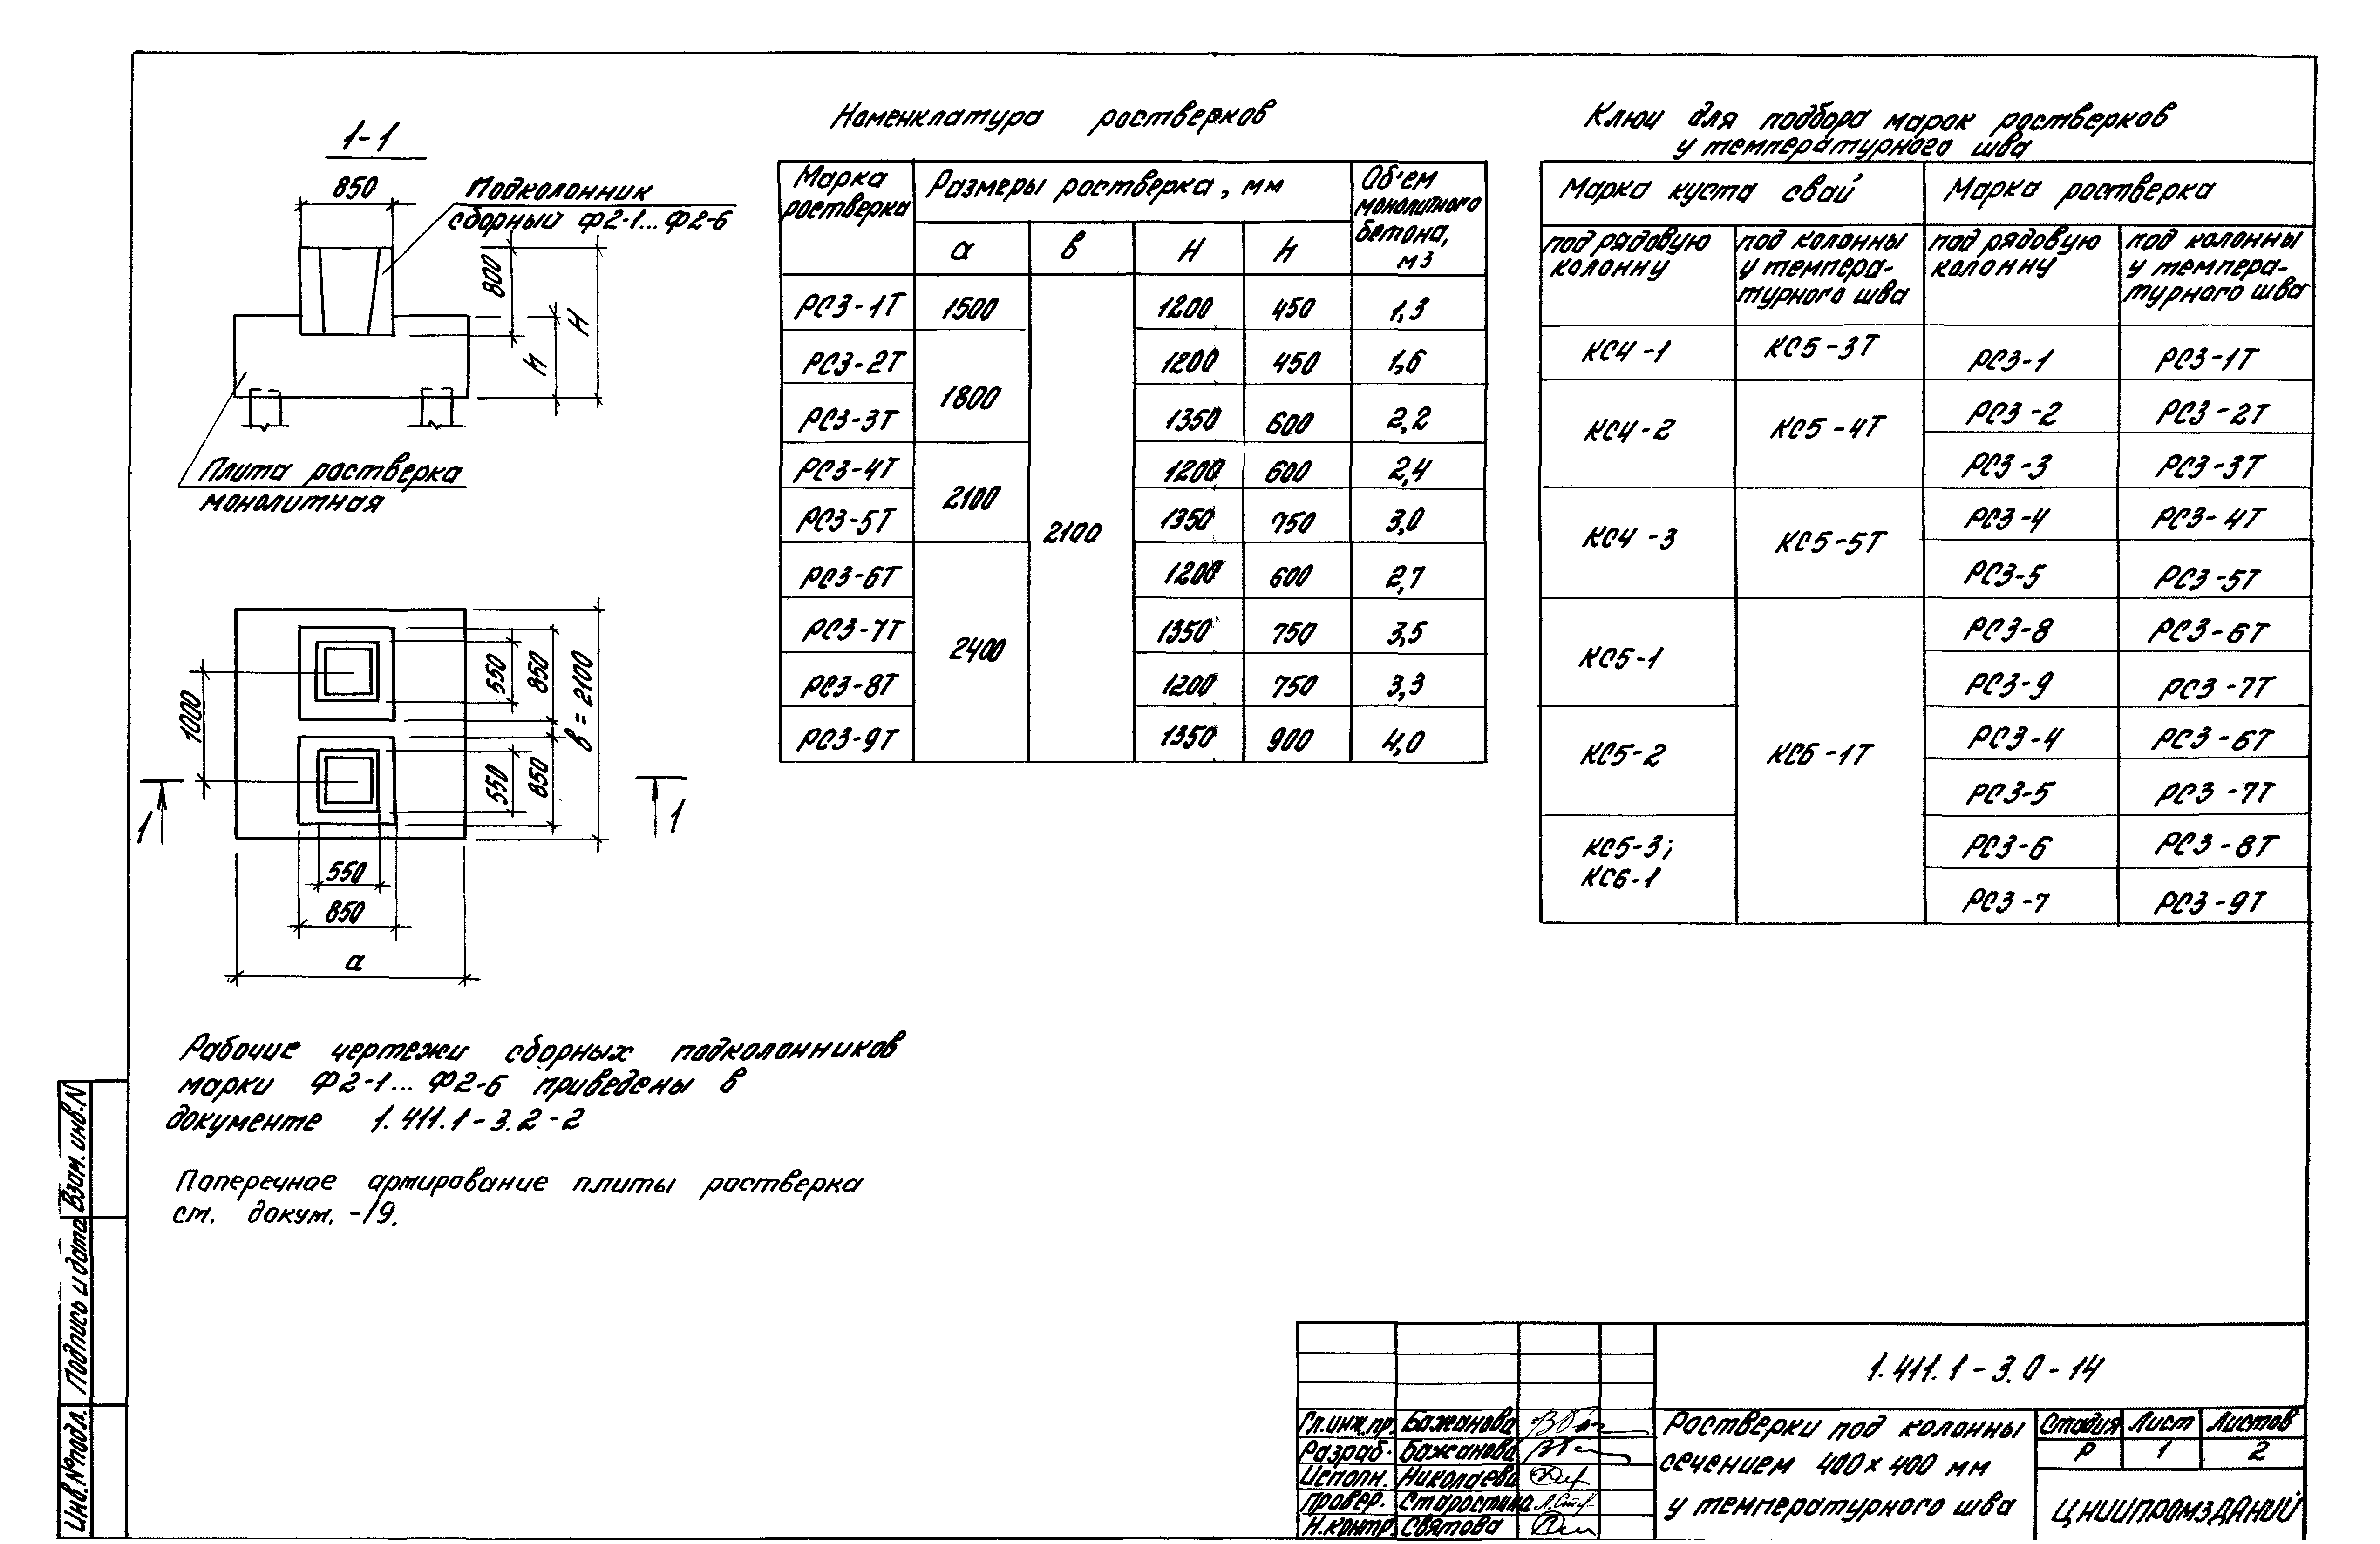 1-1
850
Подколонник
сборный Ф2-1...Ф2-6
800
H
h
Плита ростверка
монолитная
1000
550
850
в = 2100
550
850
1
1
550
850
а
Рабочие чертежи сборных подколонников
марки Ф2-1... Ф2-6 приведены в
документе 1.411.1-3.2-2
Поперечное армирование плиты ростверка
см. докум. -19.
Номенклатура ростверков
Марка ростверка | Размеры ростверка, мм | Объем монолитного бетона, м3
а | в | H | h
РС3-1Т | 1500 | 2100 | 1200 | 450 | 1,3
РС3-2Т | 1800 | 1200 | 450 | 1,6
РС3-3Т | 1350 | 600 | 2,2
РС3-4Т | 2100 | 1200 | 600 | 2,4
РС3-5Т | 1350 | 750 | 3,0
РС3-6Т | 2400 | 1200 | 600 | 2,7
РС3-7Т | 1350 | 750 | 3,5
РС3-8Т | 1200 | 750 | 3,3
РС3-9Т | 1350 | 900 | 4,0
Ключ для подбора марок ростверков
у температурного шва
Марка куста свай | Марка ростверка
под рядовую колонну | под колонны у температурного шва | под рядовую колонну | под колонны у температурного шва
КС4-1 | КС5-3Т | РС3-1 | РС3-1Т
КС4-2 | КС5-4Т | РС3-2 | РС3-2Т
РС3-3 | РС3-3Т
КС4-3 | КС5-5Т | РС3-4 | РС3-4Т
РС3-5 | РС3-5Т
КС5-1 | КС6-1Т | РС3-8 | РС3-6Т
РС3-9 | РС3-7Т
КС5-2 | РС3-4 | РС3-6Т
РС3-5 | РС3-7Т
КС5-3; КС6-1 | РС3-6 | РС3-8Т
РС3-7 | РС3-9Т
Взам. инв. N
Подпись и дата
Инв.№подл.
1.411.1-3.0-14
Гл.инж.пр. Бажанова
Разраб. Бажанова
Исполн. Николаева
Провер. Старостина
Н.контр. Святова
Ростверки под колонны
сечением 400×400 мм
у температурного шва
Стадия Лист Листов
Р 1 2
ЦНИИПРОМЗДАНИЙ